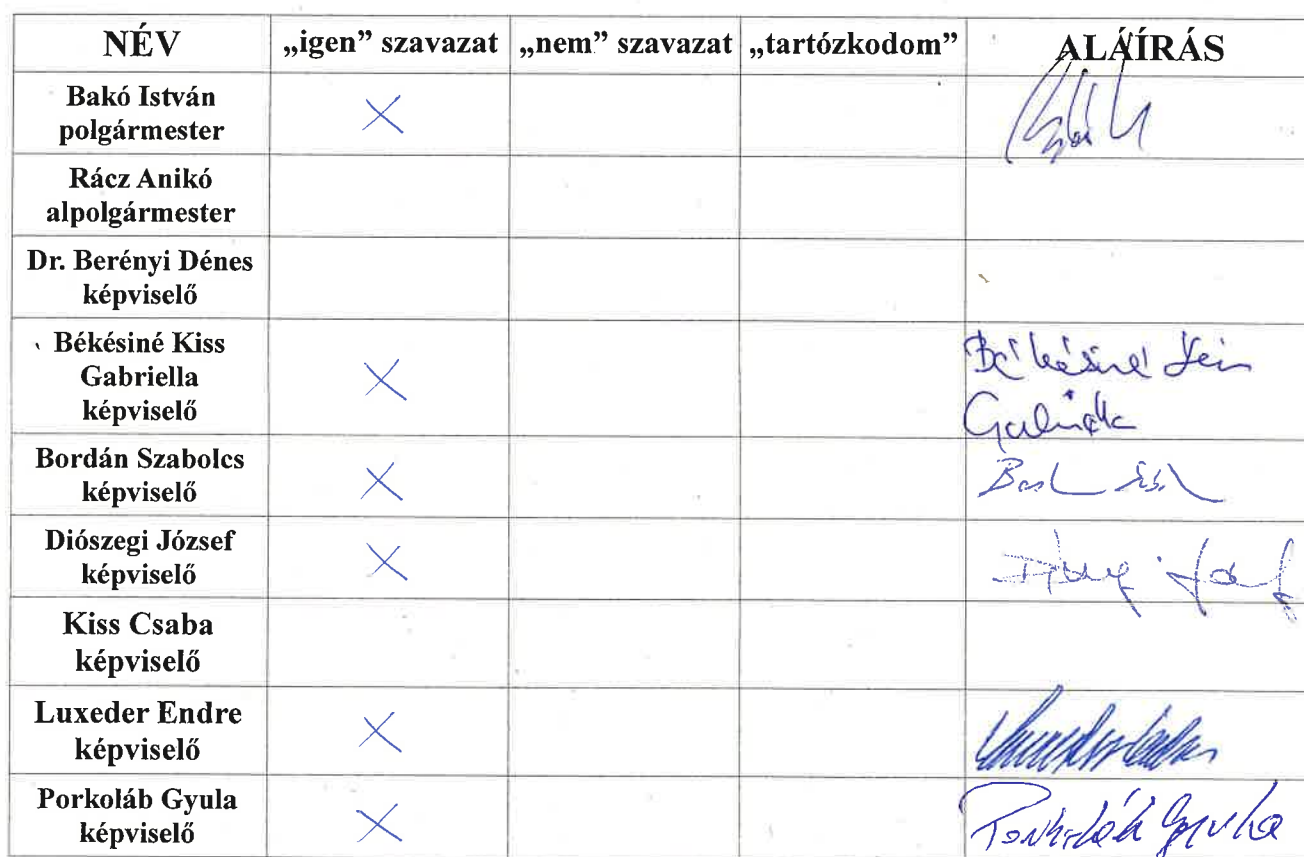 NÉV „igen” szavazat „nem” szavazat „tartózkodom” ALÁÍRÁS
Bakó István
polgármester
Rácz Anikó
alpolgármester
Dr. Berényi Dénes
képviselő
Békésiné Kiss
Gabriella
képviselő
Békésiné Kiss
Gabriella
Bordán Szabolcs
képviselő
Diószegi József
képviselő
Kiss Csaba
képviselő
Luxeder Endre
képviselő
Porkoláb Gyula
képviselő
Porkoláb Gyula